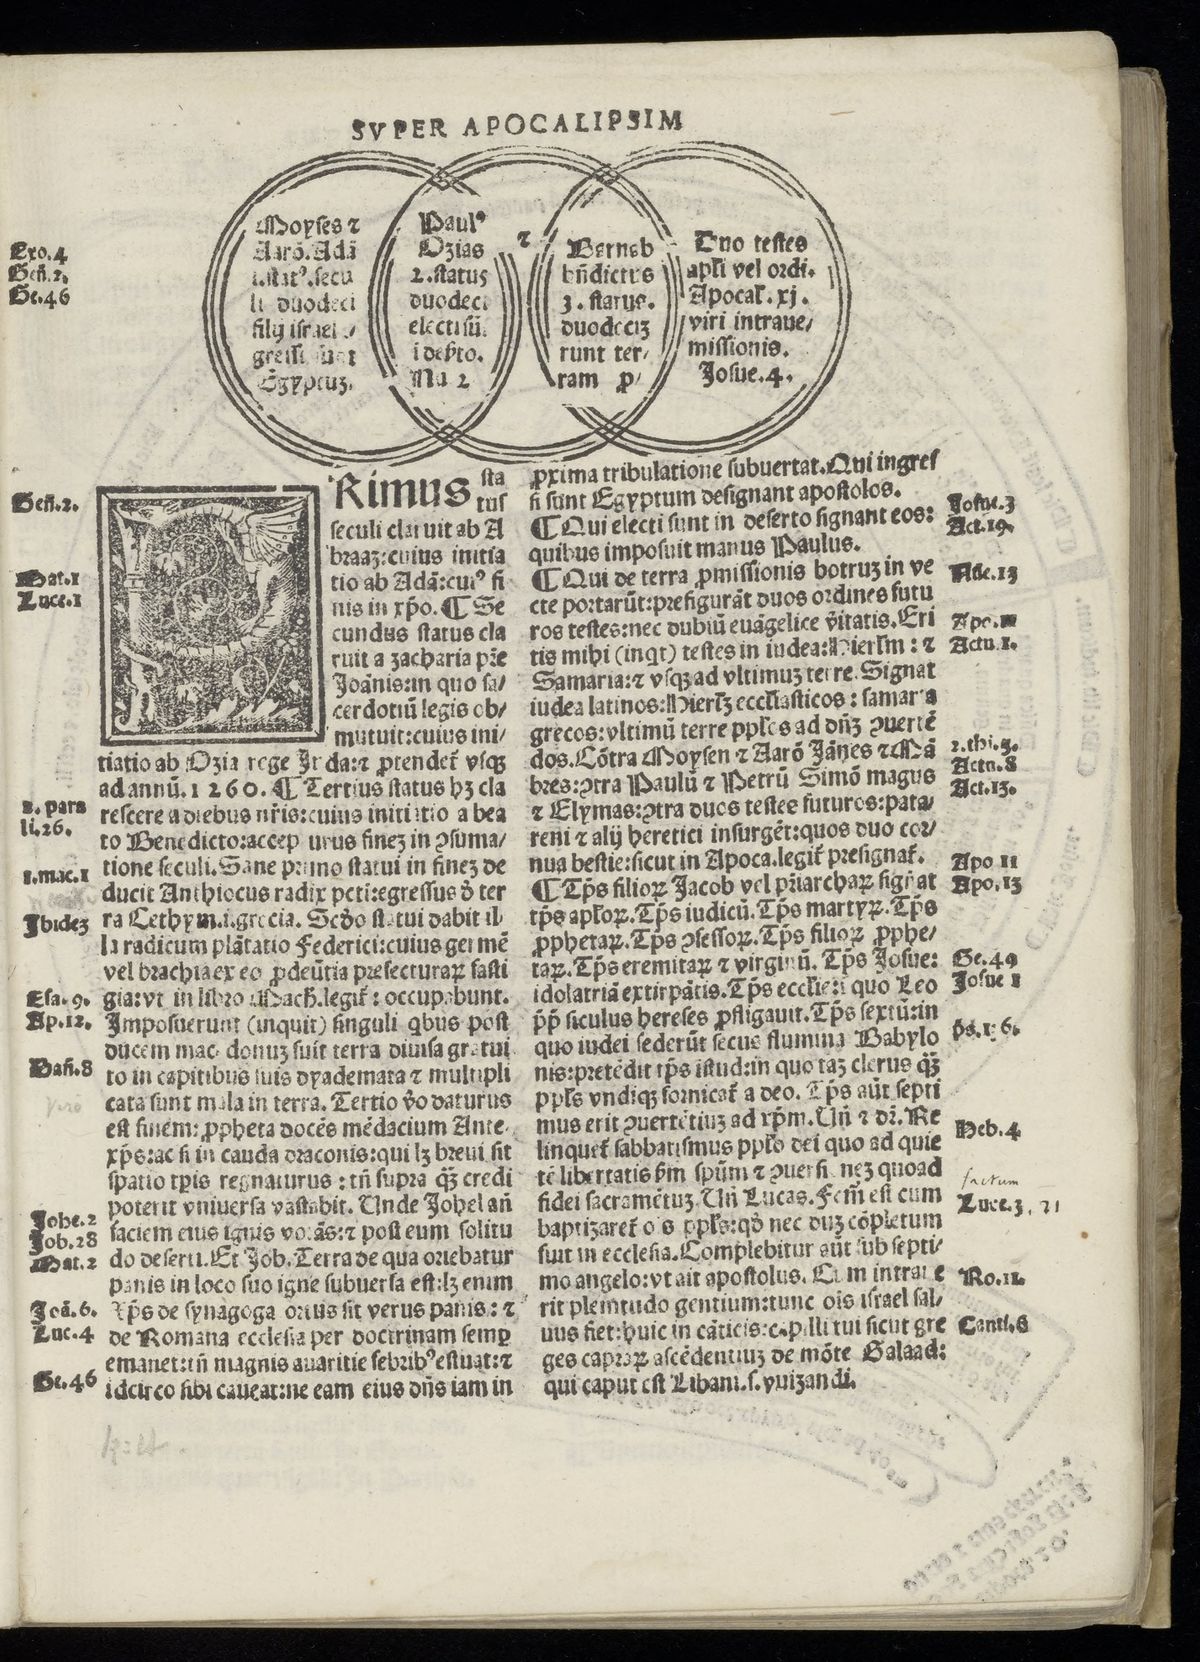 SVPER APOCALIPSIM
Moyses ⁊
Aarō. Adā
1.statꝰ.secu
li duodeci
filij israel
Egyptuꝫ.
Paulꝰ
Ozias
2.status
duodeci
electi sūt
i deẜto.
Nu 2
⁊
Barnab
bn̄dictus
3. status.
duodeciꝫ
runt ter/
ram ꝓ/
Duo testes
apl̄i vel ordi.
Apocal̄. xj.
viri intraue/
missionis.
Josue.4.
Exo.4
Gen̄.2.
Ge.46
Gen̄.2.
Mat.1
Luce.1
2. para
li.26.
1.mac.1
Ibideꝫ
Esa. 9.
Ap.12.
Dan̄.8
Johe.2
Job.28
Mat.2
Joā.6.
Luc.4
Ge.46
PRimus sta
tus
seculi claruit ab A
braaꝫ:cuius initia
tio ab Adā:cuiꝰ fi
nis in xp̄o. ¶ Se
cundus status cla
ruit a zacharia pr̄e
Joānis:in quo sa/
cerdotiū legis ob/
mutuit:cuius ini/
tiatio ab Ozia rege Juda:⁊ ꝓtendet̄ vsqꝫ
ad annū.1260. ¶ Tertius status hꝫ cla
rescere a diebus nr̄is:cuius initiatio a bea
to Benedicto:accepturus fineꝫ in ꝯsuma/
tione seculi. Sane primo statui in fineꝫ de
ducit Anthiocus radix pcti:egressus d̄ ter
ra Cethym.i.grecia. Scd̄o statui dabit il/
la radicum plātatio Federici:cuius germē
vel brachia ex eo ꝓdeūtia prefecturaꝝ fasti
gia:vt in libro Mach̄.legit̄: occupabunt.
Imposuerunt (inquit) singuli qbus post
ducem macedonuꝫ fuit terra diuisa gratui
to in capitibus suis dyademata ⁊ multipli
cata sunt mala in terra. Tertio v̄o daturus
est finem: ꝓpheta docēs mēdacium Ante/
xp̄s:ac si in cauda draconis:qui lꝫ breui sit
spatio tp̄is regnaturus : tn̄ supra qꝫ̄ credi
poterit vniuersa vastabit. Unde Johel an̄
faciem eius ignis vorās:⁊ post eum solitu
do deserti. Et Job. Terra de qua oriebatur
panis in loco suo igne subuersa est:lꝫ enim
Xp̄s de synagoga ortus sit verus panis: ⁊
de Romana ecclesia per doctrinam semꝑ
emanet:tn̄ magnis auaritie febribꝰ estuat:⁊
idcirco sibi caueat:ne eam eius dn̄s iam in
ꝓxima tribulatione subuertat. Qui ingres
si sunt Egyptum designant apostolos.
¶ Qui electi sunt in deserto signant eos:
quibus imposuit manus Paulus.
¶ Qui de terra ꝓmissionis botruꝫ in ve
cte portarūt:prefigurāt duos ordines futu
ros testes:nec dubiū euāgelice v̄itatis. Eri
tis mihi (inqt) testes in iudea:Hierl̄m : ⁊
Samaria:⁊ vsqꝫ ad vltimuꝫ terre. Signat
iudea latinos:Hierl̄ꝫ eccl̄iasticos : samaria
grecos:vltimū terre ppl̄os ad dn̄ꝫ ꝯuertē
dos. Cōtra Moysen ⁊ Aarō Jānes ⁊ Mā
bres:ꝯtra Paulū ⁊ Petrū Simō magus
⁊ Elymas:ꝯtra duos testes futuros:pata/
reni ⁊ alij heretici insurgēt:quos duo cor/
nua bestie:sicut in Apoca.legit̄ presignat̄.
¶ Tp̄s filioꝝ Jacob vel pr̄iarchaꝝ signat
tp̄s apl̄oꝝ. Tp̄s iudicū. Tp̄s martyꝝ. Tp̄s
ꝓphetaꝝ. Tp̄s ꝯfessoꝝ. Tp̄s filioꝝ ꝓphe/
taꝝ. Tp̄s eremitaꝝ ⁊ virginū. Tp̄s Josue:
idolatriā extirpātis. Tp̄s eccl̄ie:i quo Leo
p̄p̄ siculus hereses ꝓfligauit. Tp̄s sextū:in
quo iudei sederūt secus flumina Babylo
nis:pretēdit tp̄s istud:in quo taꝫ clerus qꝫ̄
ppl̄s vndiqꝫ fornicat̄ a deo. Tp̄s aūt septi
mus erit ꝯuertētiuꝫ ad xp̄m. Un̄ ⁊ dr̄. Re
linquet̄ sabbatismus ppl̄o dei quo ad quie
tē libertatis ẜm sp̄ūm ⁊ ꝯuersioneꝫ quoad
fidei sacramētuꝫ. Un̄ Lucas. Fcm̄ est cum
baptizaret̄ ois ppl̄s:qd̄ nec duꝫ cōpletum
fuit in ecclesia. Complebitur aūt sub septi/
mo angelo:vt ait apostolus. Cum intraue
rit plenitudo gentium:tunc ois israel sal/
uus fiet:huic in cāticis:capilli tui sicut gre
ges capraꝝ ascēdentiuꝫ de mōte Galaad:
qui caput est Libani.s.
Josue.3
Act.19.
Actu.1.
2.thi.3.
Actu.8
Act.13.
Apo 11
Apo.13
Ge.49
Josue 1
Heb.4
factum
Luce.3. 21
Ro.11.
Canti.6